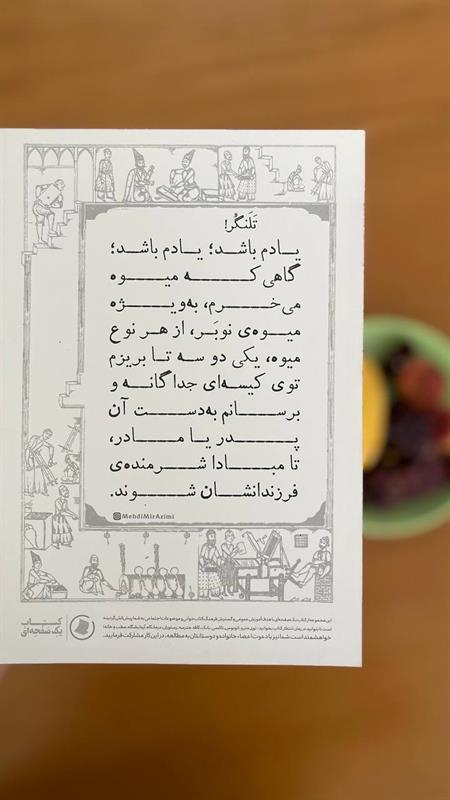 تَلَنگُر!
یادم باشد؛ یادم باشد؛
گاهی که میوه
می‌خرم، به‌ویژه
میوه‌ی نوبَر، از هر نوع
میوه، یکی دو سه تا بریزم
توی کیسه‌ای جداگانه و
برسانم به‌دست آن
پدر یا مادر،
تا مبادا شرمنده‌ی
فرزندانشان شوند.
MehdiMirAzimi
کتاب
یک صفحه‌ای
خواهشمند است شما نیز با دعوت اعضاء خانواده و دوستانتان به مطالعه، در این کار مشارکت فرمایید.